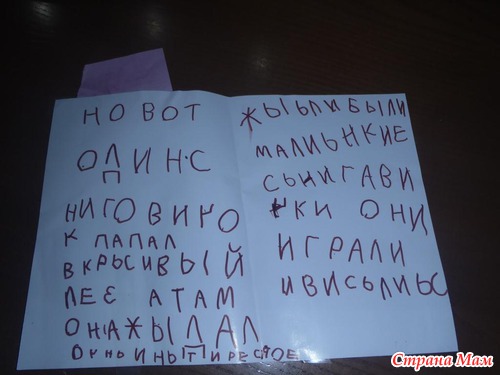 НО ВОТ
ОДИН·С
НИГОВИЧО
К ПАПАЛ
ВКРЬСИВЫЙ
ЛЕС АТАМ
ОНАЖЫЛАЛ
ЖЫЬЛИ БЫЛИ
МАЛИЬНКИЕ
СЬНИГАВИ
ЧКИ ОНИ
ИГРАЛИ
ИВИСЬЛИЬС
Страна Мам